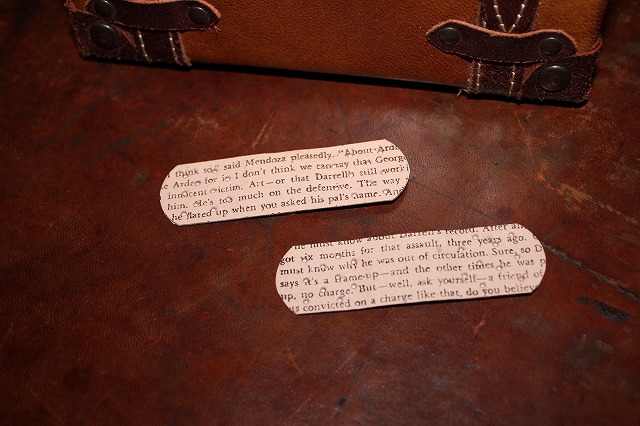 I think so," said Mendoza pleasedly. "About Ard
Arden for it I don't think we can say that George
innocent victim. Art—or that Darrell's still worki
him. He's too much on the defensive. The way
he flared up when you asked his pal's name. And
he must know about Darrell's record. After all
got six months for that assault, three years ago.
must know why he was out of circulation. Sure, so D
says it's a frame-up—and the other times he was p
up, no charge. But—well, ask yourself—a friend of
convicted on a charge like that, do you believe